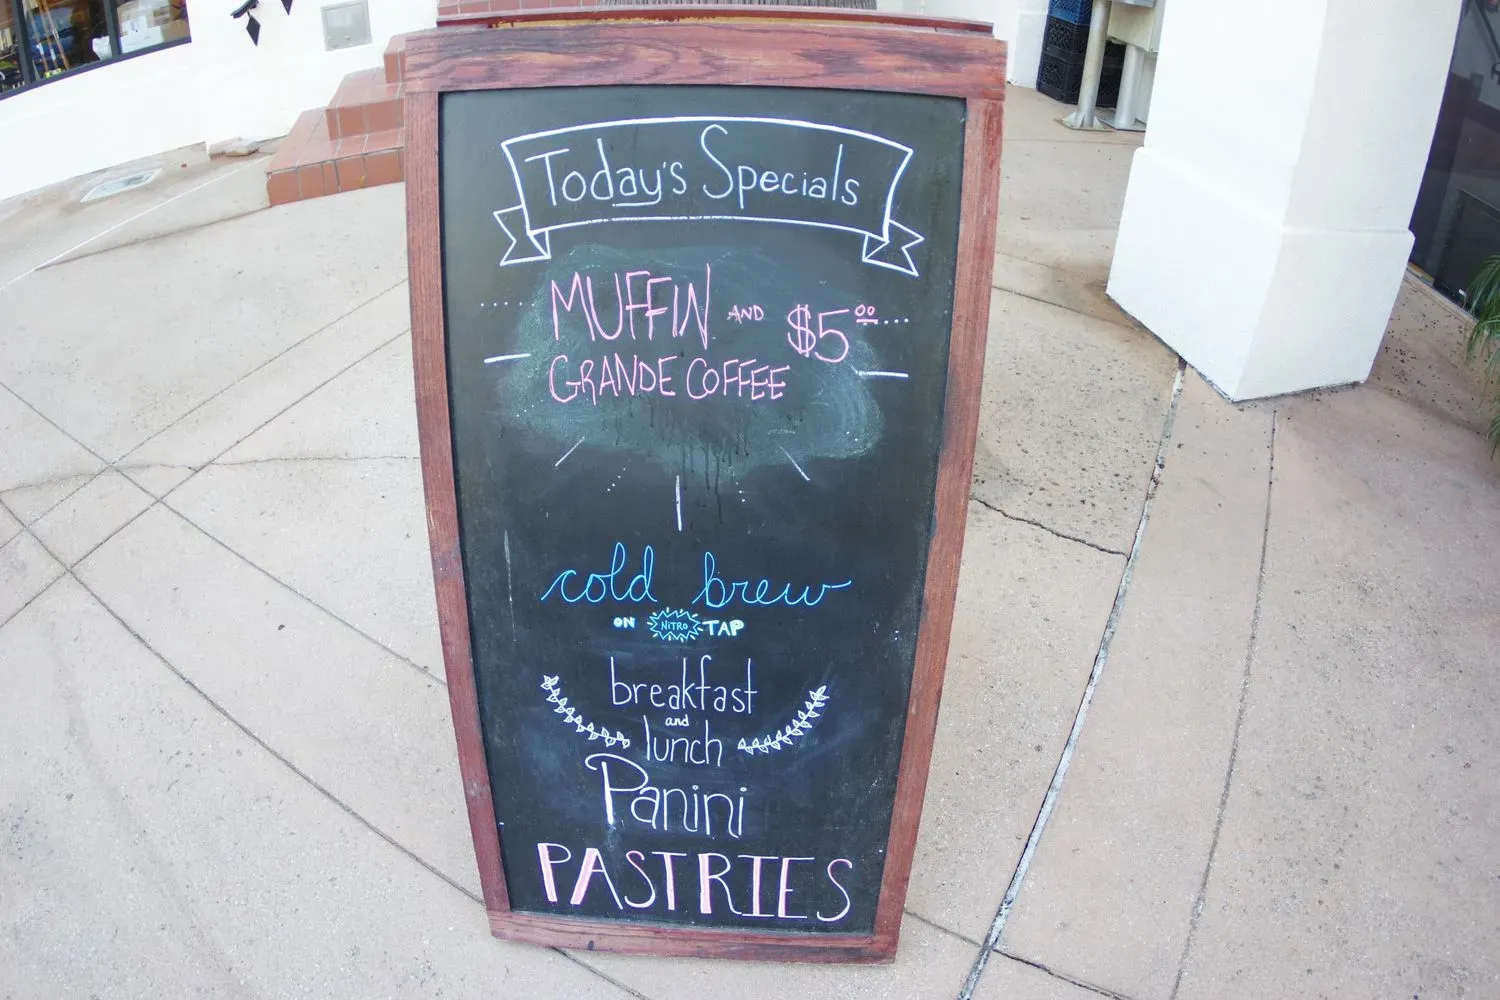 Today's Specials
MUFFIN AND $5.00
GRANDE COFFEE
cold brew
ON NITRO TAP
breakfast
and
lunch
Panini
PASTRIES